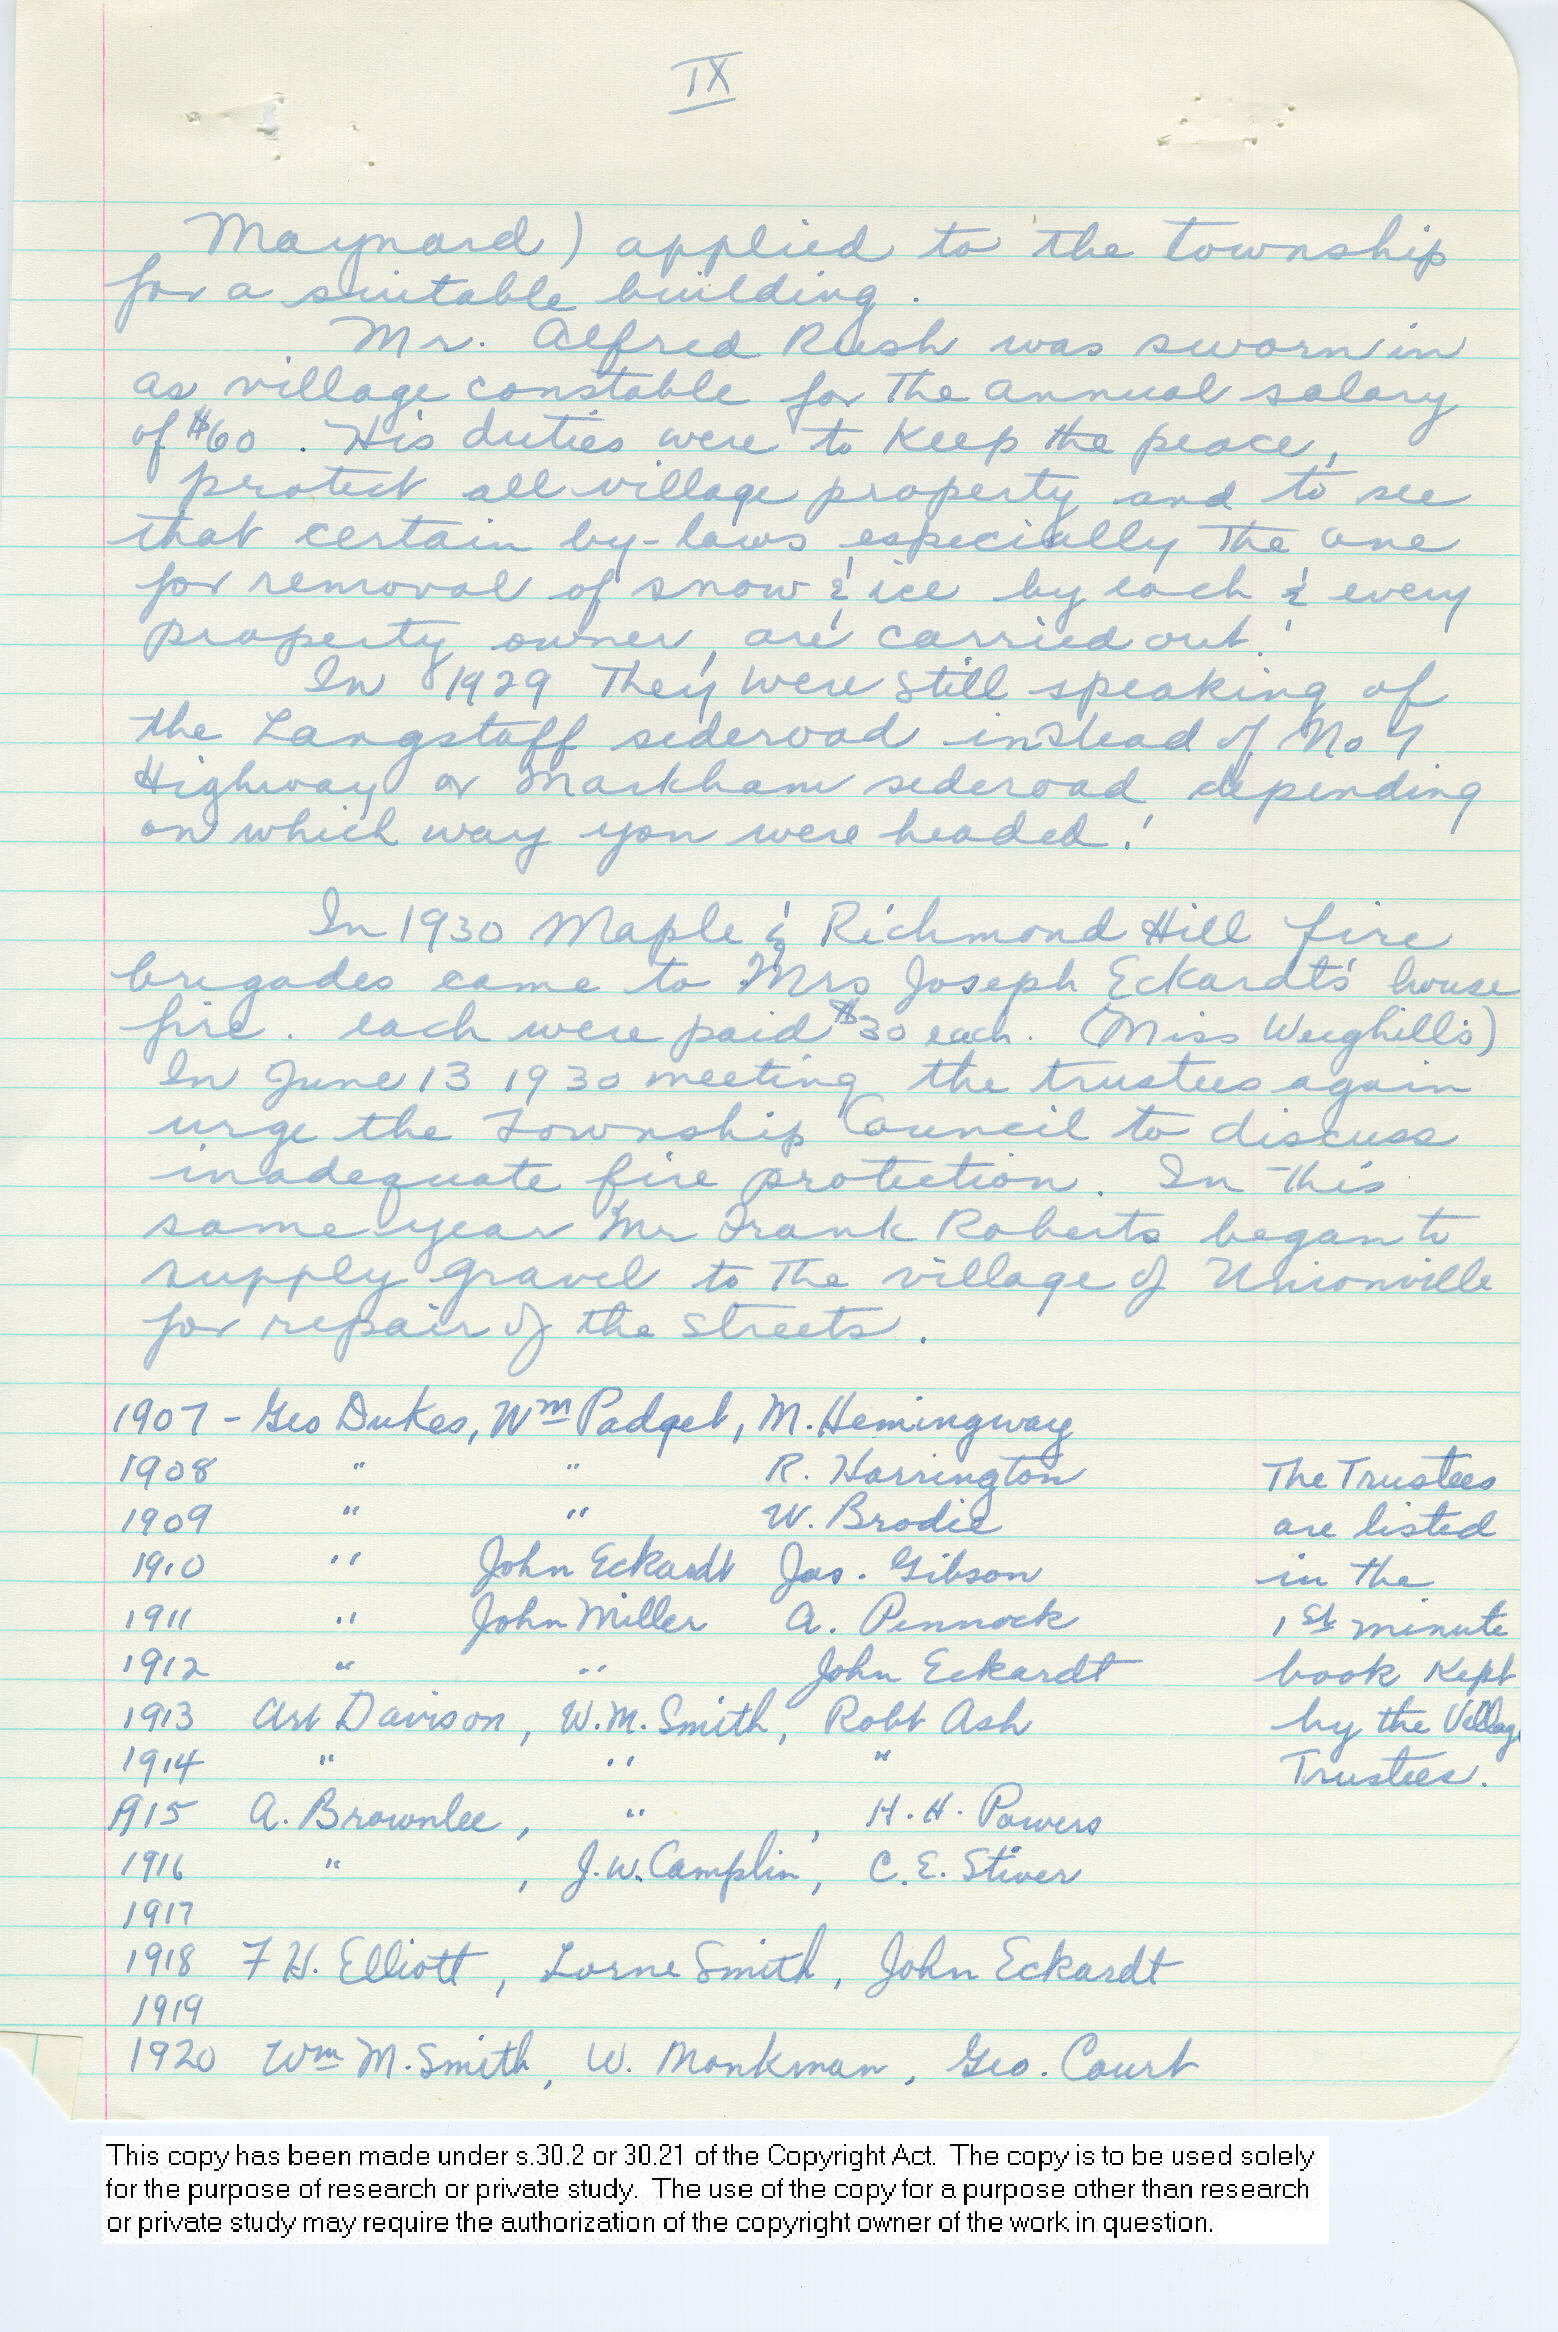 IX
Maynard) applied to the township
for a suitable building.
Mr. Alfred Rush was sworn in
as village constable for the annual salary
of $60. His duties were to keep the peace,
protect all village property and to see
that certain by-laws especially the one
for removal of snow & ice by each & every
property owner, are carried out.
In 1929 they were still speaking of
the Langstaff sideroad instead of No 7
Highway or Markham sideroad depending
on which way you were headed!
In 1930 Maple & Richmond Hill fire
brigades came to Mrs Joseph Eckardt's house
fire. each were paid $30 each. (Miss Weighill's)
In June 13 1930 meeting the trustees again
urge the Township Council to discuss
inadequate fire protection. In this
same year Mr Frank Roberts began to
supply gravel to the village of Unionville
for repair of the streets.
1907 - Geo Dukes, Wm Padget, M. Hemingway
1908 " " R. Harrington
1909 " " W. Brodie
1910 " John Eckardt Jas. Gibson
1911 " John Miller A. Pennock
1912 " " John Eckardt
1913 Art Davison, W.M. Smith, Robt Ash
1914 " " "
1915 A. Brownlee, " , H.H. Powers
1916 " , J.W. Camplin, C.E. Stiver
1917
1918 F H. Elliott, Lorne Smith, John Eckardt
1919
1920 Wm M. Smith, W. Monkman, Geo. Court
The Trustees
are listed
in the
1st minute
book kept
by the Village
Trustees.
This copy has been made under s.30.2 or 30.21 of the Copyright Act. The copy is to be used solely
for the purpose of research or private study. The use of the copy for a purpose other than research
or private study may require the authorization of the copyright owner of the work in question.